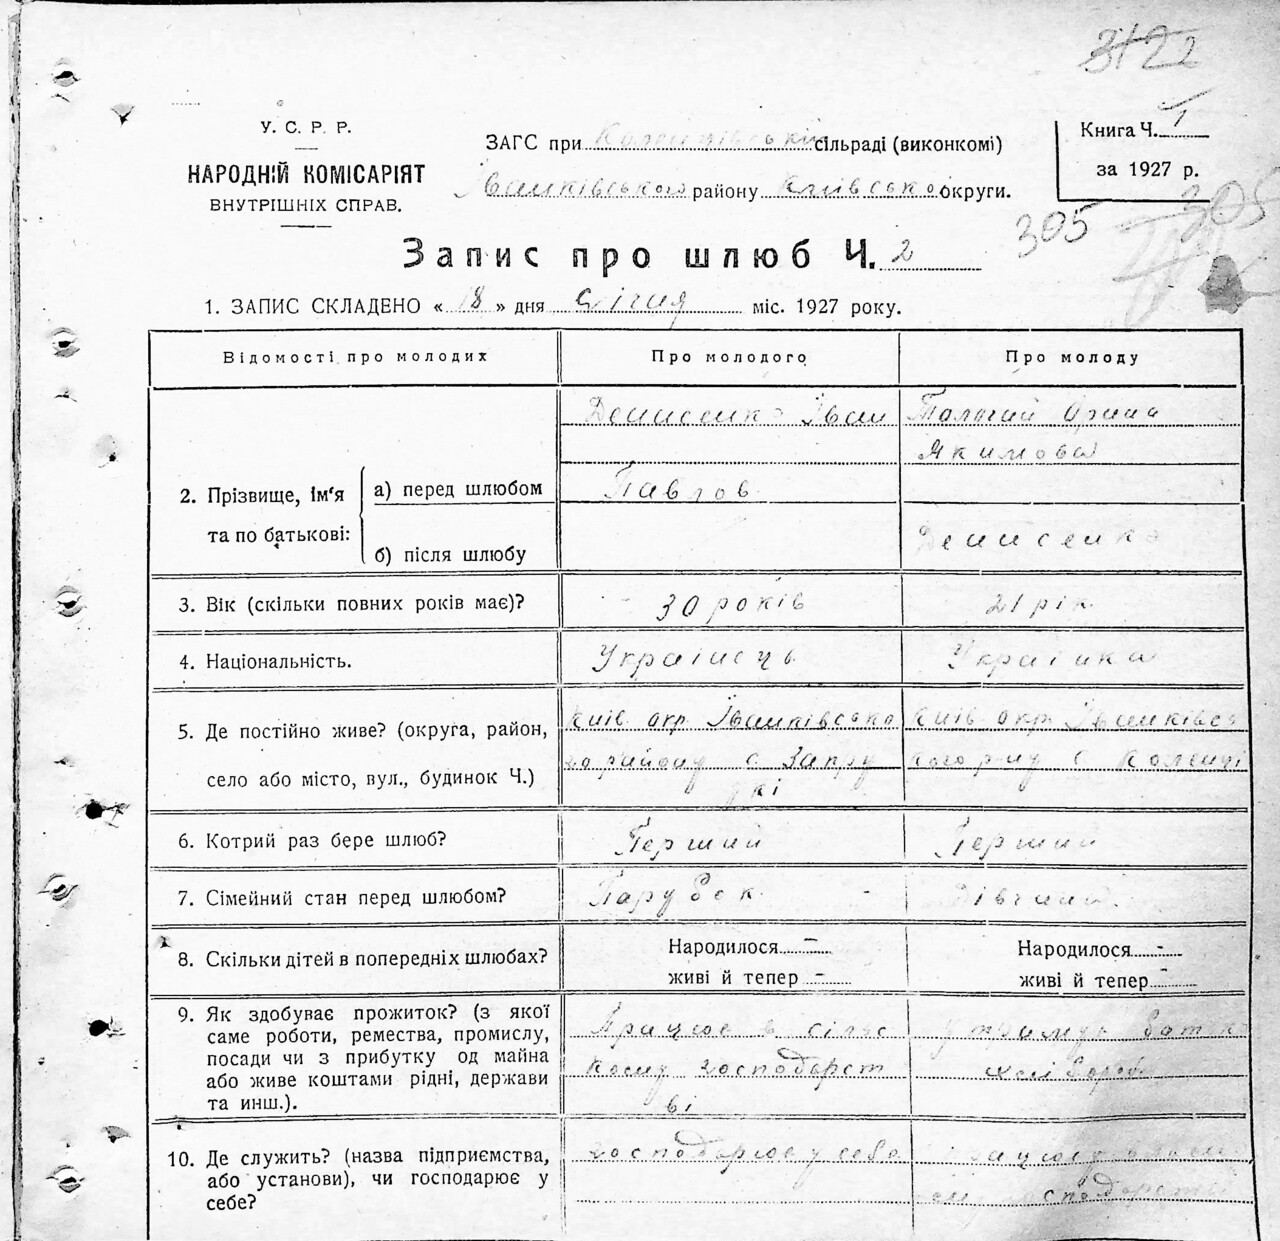 3122
У. С. Р. Р.
НАРОДНІЙ КОМІСАРІЯТ
ВНУТРІШНІХ СПРАВ.
ЗАГС при Коленцівській сільраді (виконкомі)
Іванківського району Київської округи.
Книга Ч. 1
за 1927 р.
305
305
Запис про шлюб Ч. 2
1. ЗАПИС СКЛАДЕНО « 18 » дня Січня міс. 1927 року.
Відомості про молодих
Про молодого
Про молоду
2. Прізвище, ім'я та по батькові:
а) перед шлюбом
б) після шлюбу
Денисенко Іван
Павлов
Орина
Якимова
Денисенко
3. Вік (скільки повних років має)?
30 років
21 рік
4. Національність.
Украінець
Украінка
5. Де постійно живе? (округа, район,
село або місто, вул., будинок Ч.)
Київ. окр. Іванківсько
го району с. Запру
дкі
Київ. окр. Іванківсь
кого р-ну с. Коленці
6. Котрий раз бере шлюб?
Перший
Перший
7. Сімейний стан перед шлюбом?
Парубок
Дівчина
8. Скільки дітей в попередніх шлюбах?
Народилося -
живі й тепер -
Народилося -
живі й тепер -
9. Як здобуває прожиток? (з якої
саме роботи, ремества, промислу,
посади чи з прибутку од майна
або живе коштами рідні, держави
та инш.).
Працює в сільс
кому господарст
ві
хлібороб
10. Де служить? (назва підприємства,
або установи), чи господарює у
себе?
господарює у себе
Працює
господарстві